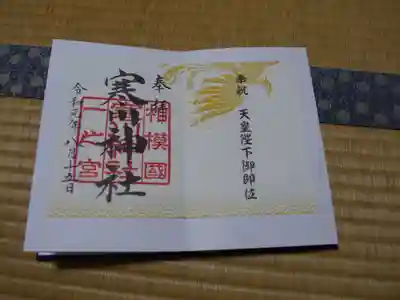 奉祝
天皇陛下御即位
奉拝
相模國
一之宮
寒川神社
令和元年 八月十五日